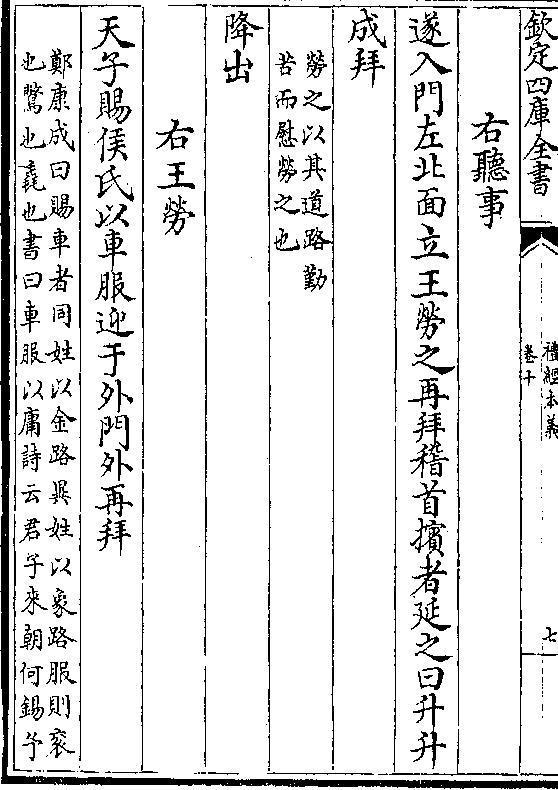 欽定四庫全書
禮經本義
卷十
七
右聽事
遂入門左北面立王勞之再拜稽首擯者延之曰升升
成拜
勞之以其道路勤
苦而慰勞之也
降出
右王勞
天子賜侯氏以車服迎于外門外再拜
鄭康成曰賜車者同姓以金路異姓以象路服則衮
也驚也毳也書曰車服以庸詩云君子來朝何錫予